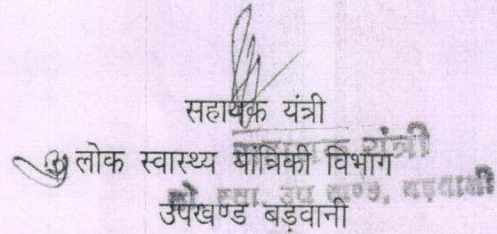 सहायक यंत्री
लोक स्वास्थ्य यांत्रिकी विभाग
उपखण्ड बड़वानी